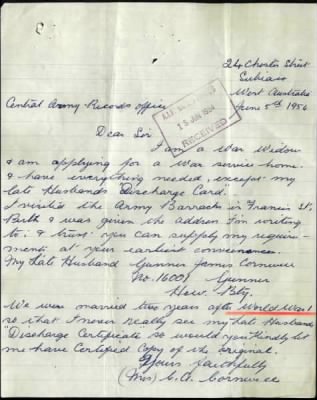 24 Chester Street
Subiaco
West Australia
June 5th 1956
Central Army Records office
15 JUN 1956
RECEIVED
Dear Sir
I am a War Widow
& am applying for a War service home.
& have everything needed, except my
late Husbands "Discharge Card".
I visited the Army Barracks in Francis St,
Perth & was given the address I'm writing
to: & trust you can supply my require-
ments at your earliest convenience.
My Late Husband Gunner James Cornwell
No. 16001 Gunner
How. Bty.
We were married two years after World War 1
so that I never really see my late Husbands
"Discharge Certificate so would you kindly let
me have Certified Copy of the original.
Yours faithfully
(Mrs) C. A. Cornwell